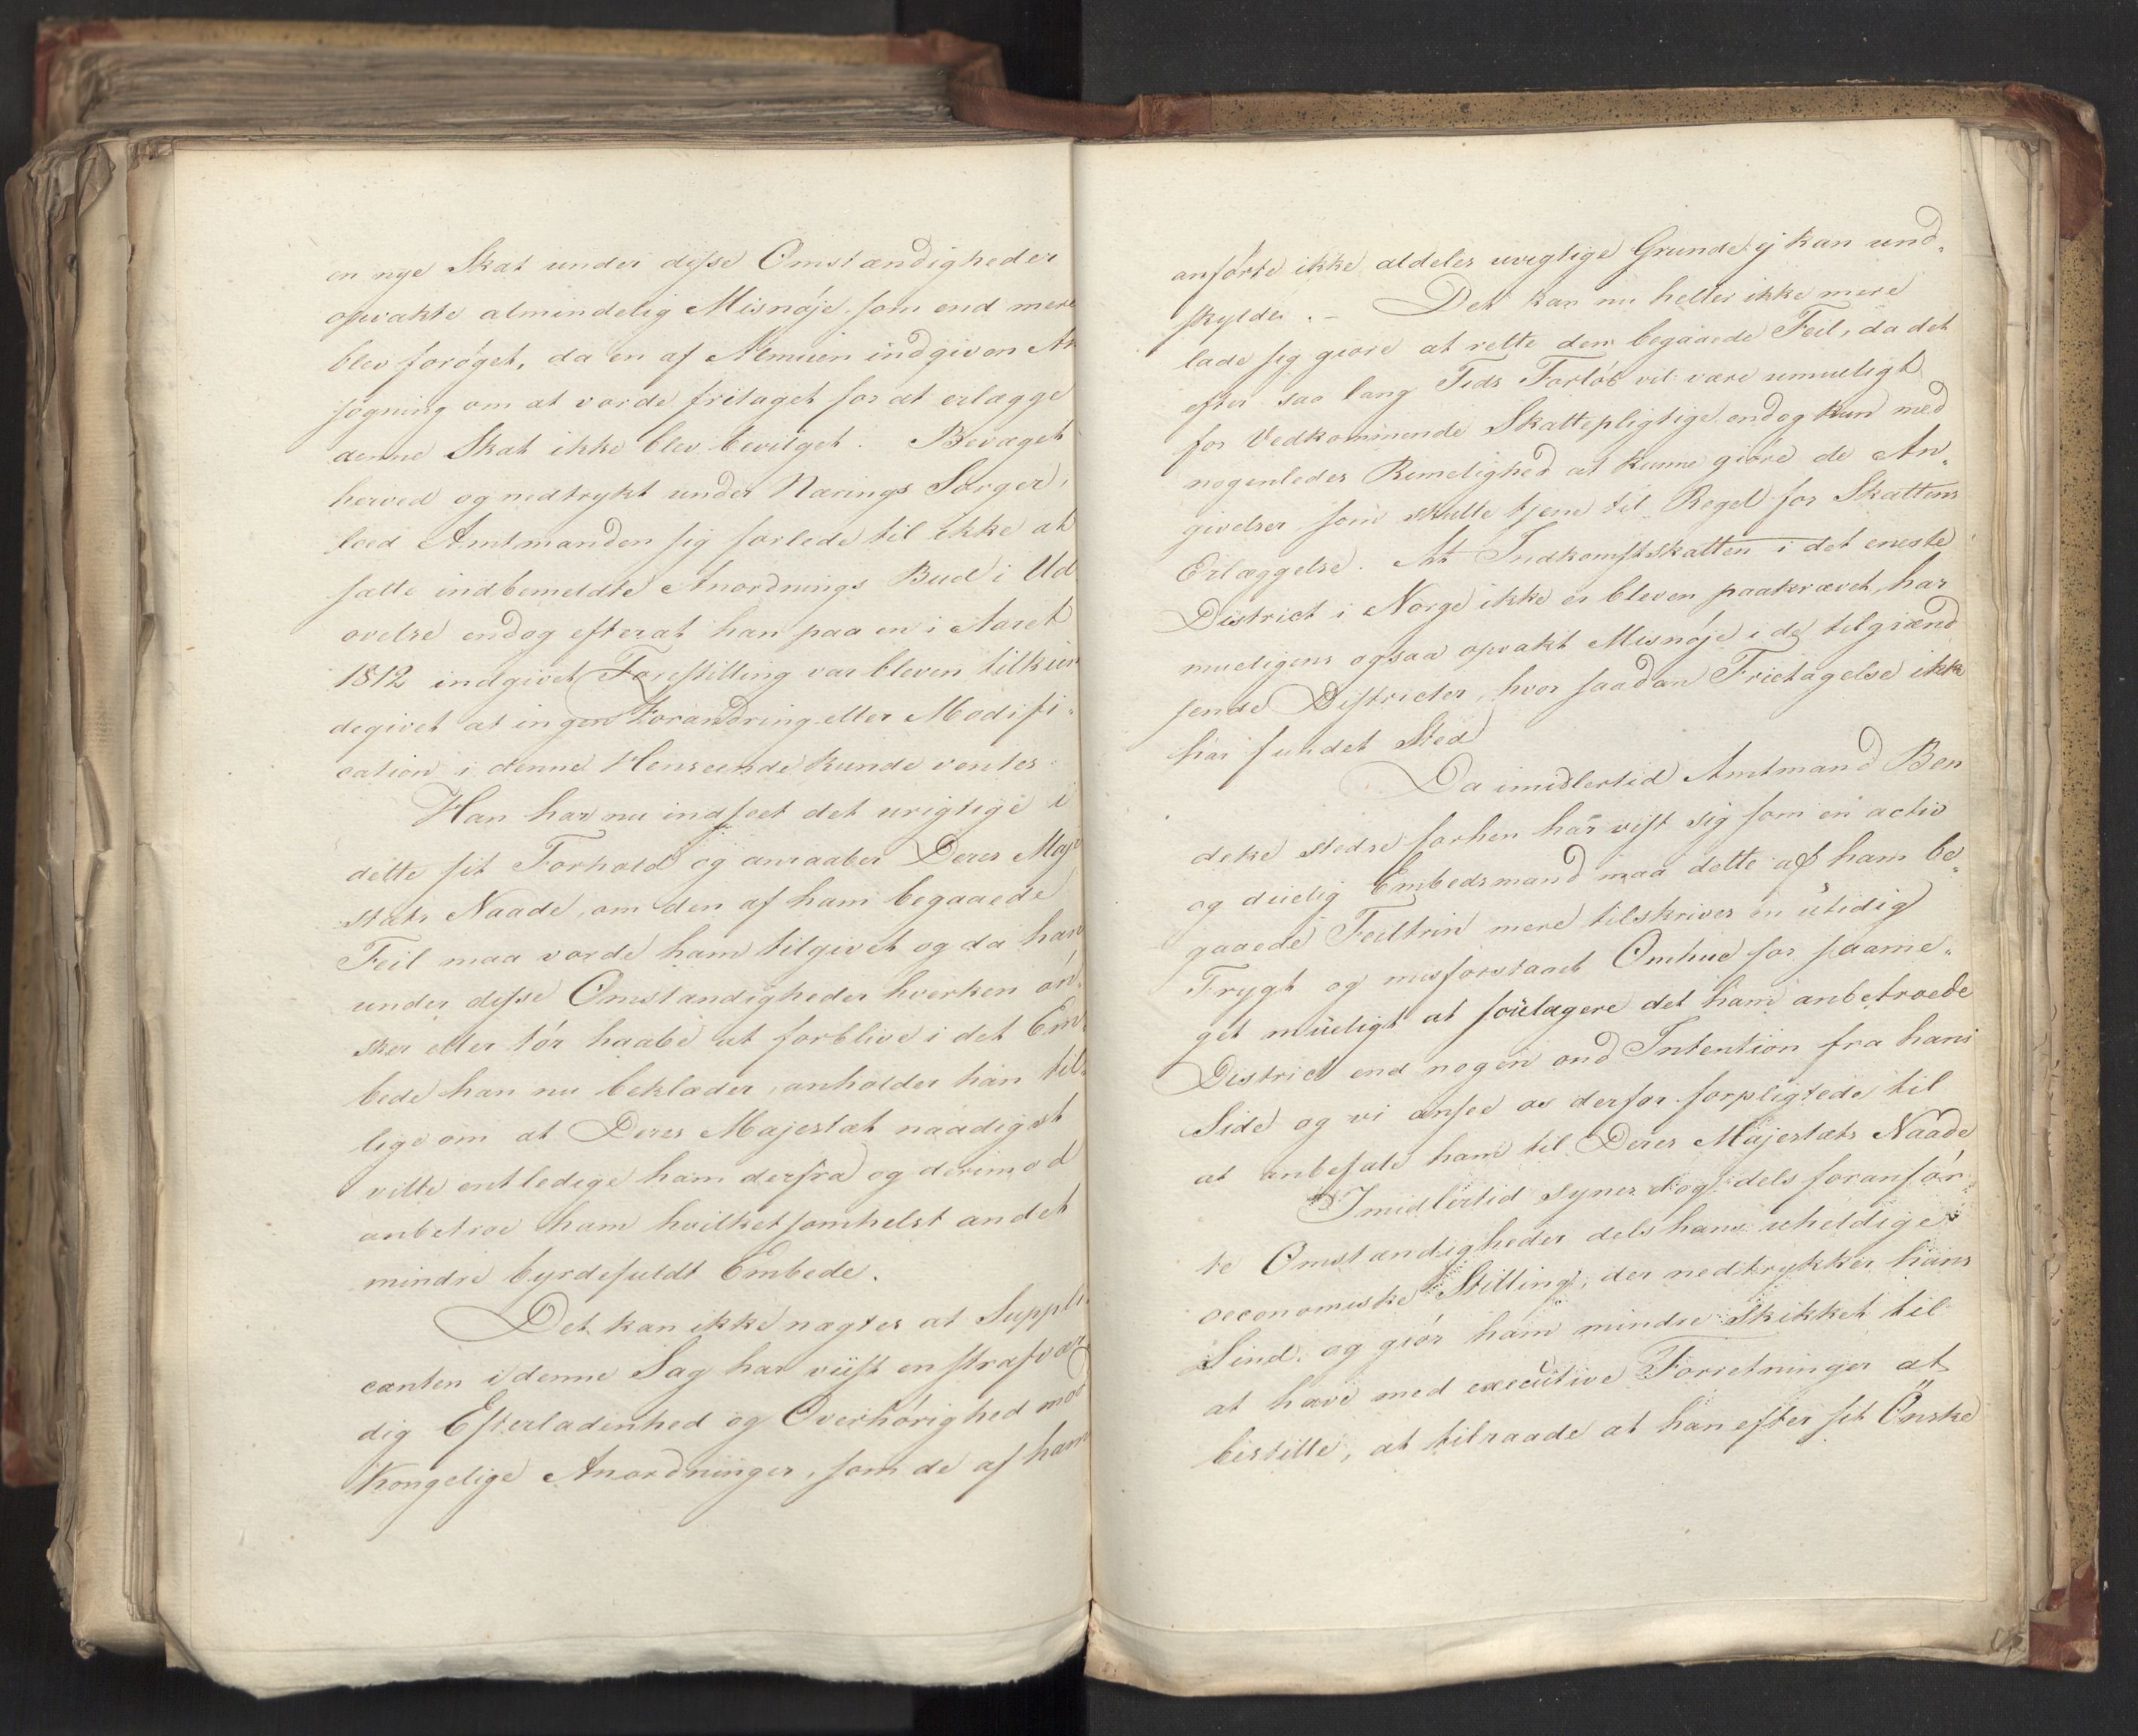 en nye Skat under disse Omstændigheder
opvakte almindelig Misnøje som end mere
blev forøget, da en af Almuen indgiven An
søgning om at vorde fritaget for at erlægge
denne Skat ikke blev bevilget. Bevæget
herved og nedtrykt under Nærings Sorger,
lod Amtmanden sig forlede til ikke at
sætte indbemeldte Anordnings Bud i Ud
øvelse endog efterat han paa en i Aaret
1812 indgivet Forestilling var bleven tilkien
degivet at ingen Forandring eller Modifi-
cation i denne Henseende kunde ventes.
Han har nu indseet det urigtige i
dette sit Forhold og anraaber Deres Maje
stæts Naade, om den af ham begaaede
Feil maa vorde ham tilgivet og da han
under disse Omstændigheder hverken øn-
sker eller tør haabe at forblive i det Em-
bede han nu beklæder, anholder han til-
lige om at Deres Majestæt naadigst
vilde entledige ham derfra og derimod
anbetroe ham hvilketsomhelst andet
mindre byrdefuldt Embede.
Det kan ikke nægtes at Suppli-
canten i denne Sag har viist en strafvær
dig Efterladenhed og Overhørighed mod
Kongelige Anordninger, som de af ham
anførte ikke aldeles uvigtige Grunde ej kan und-
skylde. - Det kan nu heller ikke mere
lade sig giøre at rette den begaaede Feil, da det
efter saa lang Tids Forløb vil være umueligt
for Vedkommende Skattepligtige endog kun med
nogenledes Rimelighed at kunne giøre de An-
givelser som skulle tjene til Regel for Skattens
Erlæggelse. At Indkomstskatten i det eneste
District i Norge ikke er bleven paakrævet, har
mueligens ogsaa opvakt Misnøje i de tilgrænd
sende Districter, hvor saadan Frietagelse ikke
har fundet Sted
Da imidlertid Amtmand Ben
deke stedse forhen har vist sig som en activ
og duelig Embedsmand maa dette af ham be-
gaaede Feiltrin mere tilskrives en utidig
Frygt og misforstaaet Omhue for saame-
get mueligt at soulagere det ham anbetroede
District end nogen ond Intention fra hans
Side og vi ansee os derfor forpligtede til
at anbefale ham til Deres Majestæts Naade
Imidlertid synes dog dels foranfør-
te Omstændigheder dels hans uheldige
oeconomiske Stilling, der nedtrykker hans
Sind, og giør ham mindre skikket til
at have med executive Forretninger at
bestille, at tilraade at han efter sit Ønske